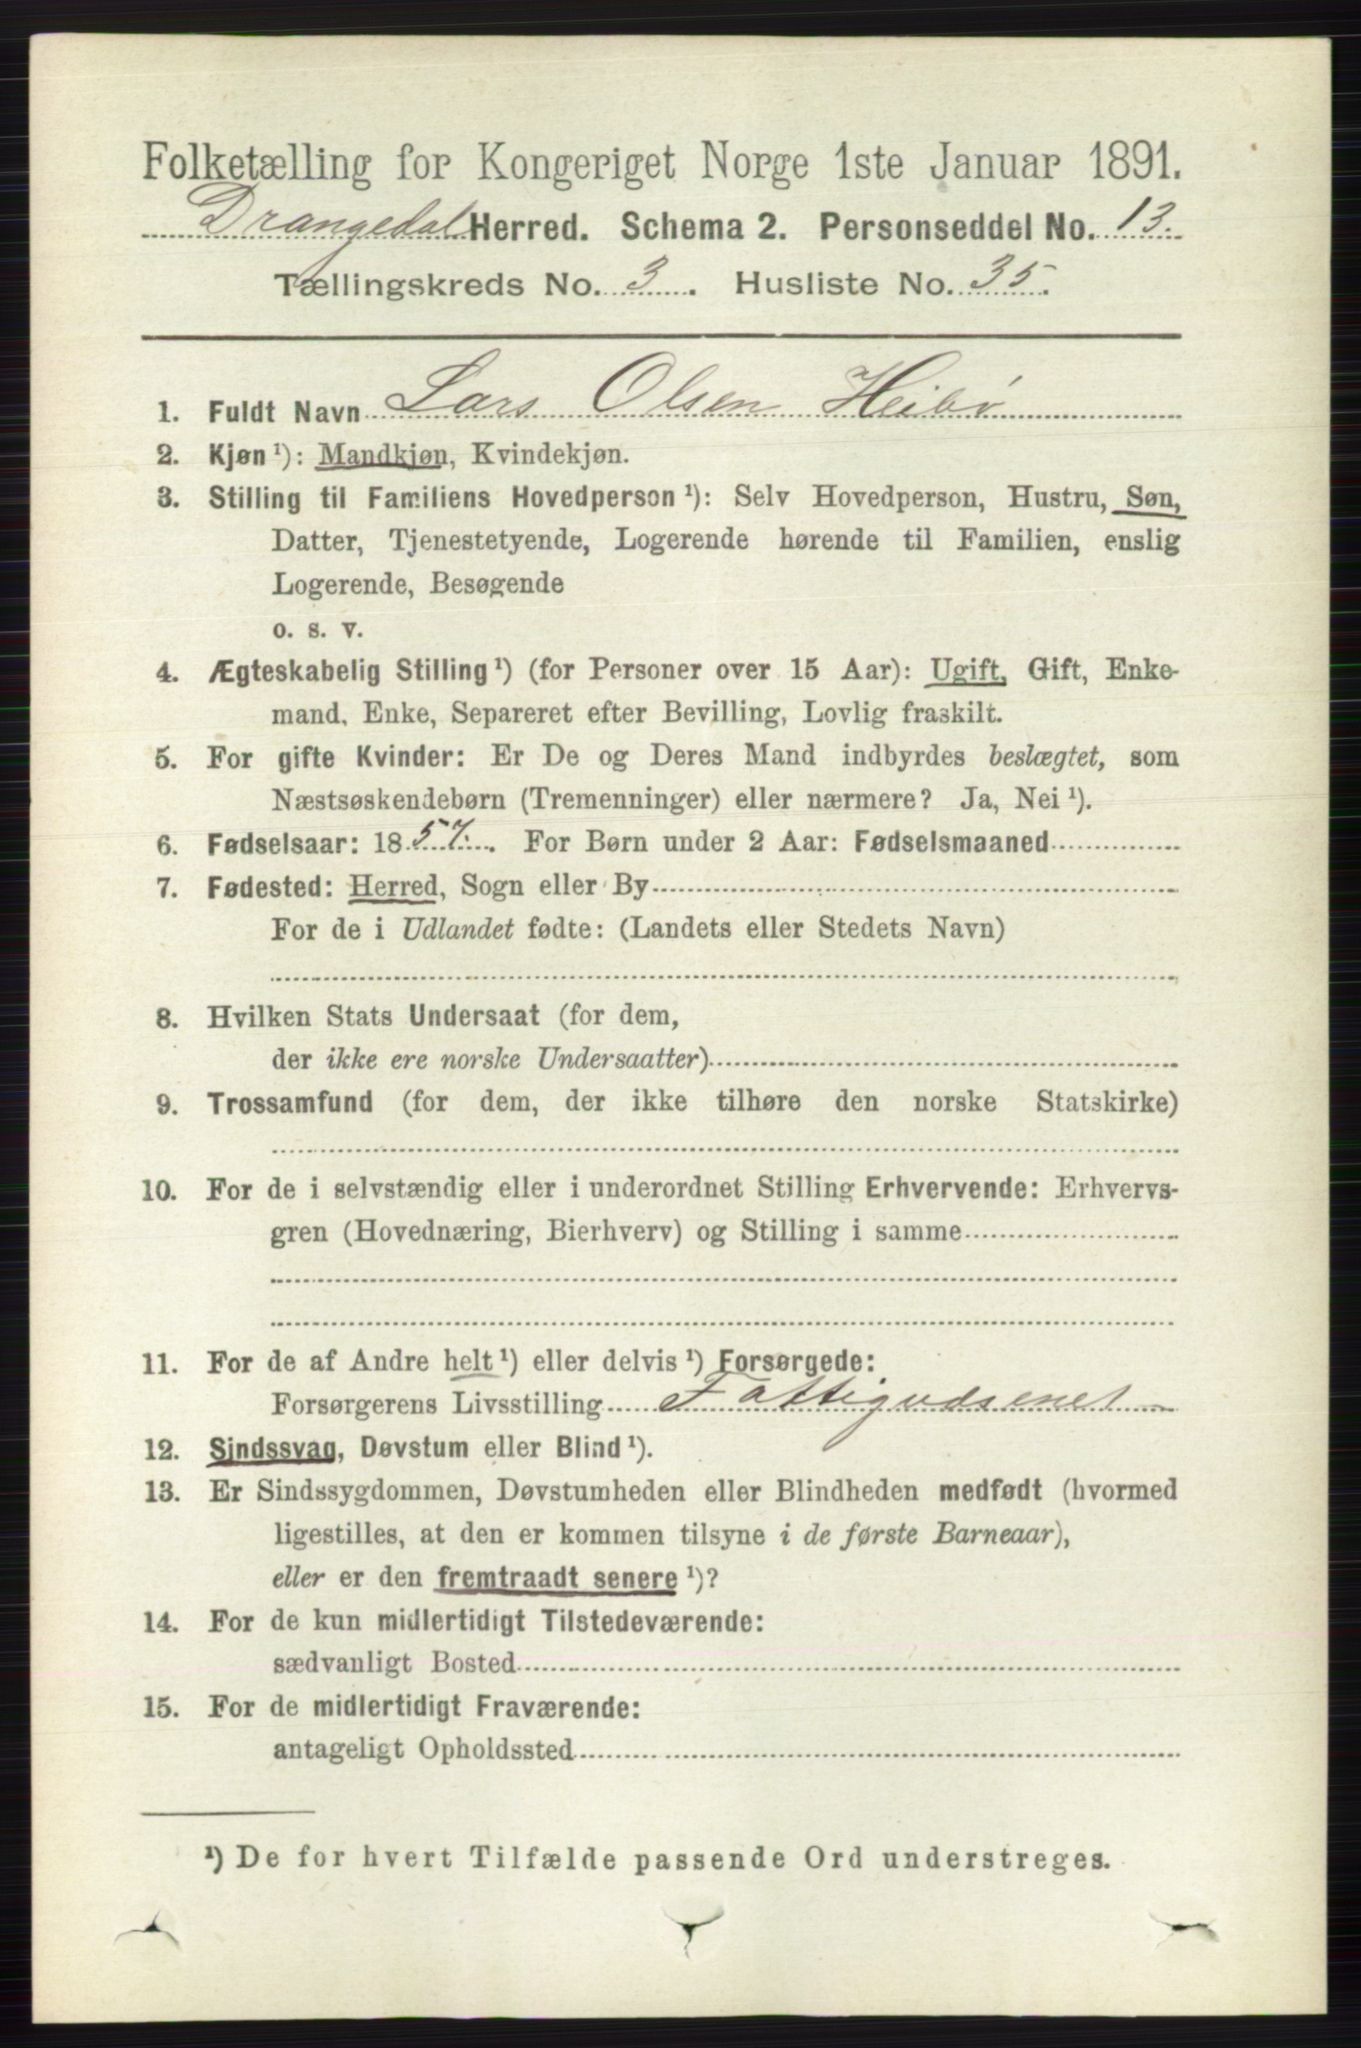 Folketælling for Kongeriget Norge 1ste Januar 1891.
Drangedal Herred. Schema 2. Personseddel No. 13.
Tællingskreds No. 3. Husliste No. 35.
1. Fuldt Navn Lars Olsen Heibø
2. Kjøn ¹): Mandkjøn, Kvindekjøn.
3. Stilling til Familiens Hovedperson ¹): Selv Hovedperson, Hustru, Søn,
Datter, Tjenestetyende, Logerende hørende til Familien, enslig
Logerende, Besøgende
o. s. v.
4. Ægteskabelig Stilling ¹) (for Personer over 15 Aar): Ugift, Gift, Enke-
mand, Enke, Separeret efter Bevilling, Lovlig fraskilt.
5. For gifte Kvinder: Er De og Deres Mand indbyrdes beslægtet, som
Næstsøskendebørn (Tremenninger) eller nærmere? Ja, Nei ¹).
6. Fødselsaar: 1857. For Børn under 2 Aar: Fødselsmaaned
7. Fødested: Herred, Sogn eller By
For de i Udlandet fødte: (Landets eller Stedets Navn)
8. Hvilken Stats Undersaat (for dem,
der ikke ere norske Undersaatter)
9. Trossamfund (for dem, der ikke tilhøre den norske Statskirke)
10. For de i selvstændig eller i underordnet Stilling Erhvervende: Erhvervs-
gren (Hovednæring, Bierhverv) og Stilling i samme
11. For de af Andre helt ¹) eller delvis ¹) Forsørgede:
Forsørgerens Livsstilling Fattigvdsenet
12. Sindssvag, Døvstum eller Blind ¹).
13. Er Sindssygdommen, Døvstumheden eller Blindheden medfødt (hvormed
ligestilles, at den er kommen tilsyne i de første Barneaar),
eller er den fremtraadt senere ¹)?
14. For de kun midlertidigt Tilstedeværende:
sædvanligt Bosted
15. For de midlertidigt Fraværende:
antageligt Opholdssted
¹) De for hvert Tilfælde passende Ord understreges.